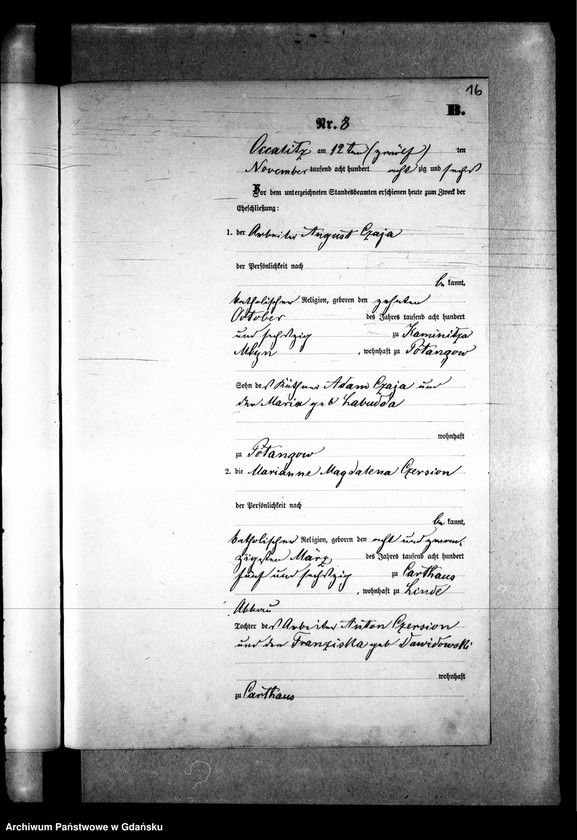 16
B.
Nr. 8
Occalitz am 12ten (zwölf) ten
November tausend acht hundert acht zig und sechs
Vor dem unterzeichneten Standesbeamten erschienen heute zum Zweck der
Eheschließung:
1. der Arbeiter August Czaja
der Persönlichkeit nach
be kannt,
katholischer Religion, geboren den zehnten
October des Jahres tausend acht hundert
und sechszig zu Kaminitza
Mlyn, wohnhaft zu Potangow
Sohn des Käthner Adam Czaja und
der Maria geb Labudda
wohnhaft
zu Potangow
2. die Marianne Magdalena Czersion
der Persönlichkeit nach
be kannt,
katholischer Religion, geboren den acht und zwan,
zigsten März des Jahres tausend acht hundert
fünf und sechszig zu Carthaus
, wohnhaft zu Linde
Abbau
Tochter des Arbeiter Anton Czersion
und der Franziska geb Dawidowski
wohnhaft
zu Carthaus
Archiwum Państwowe w Gdańsku